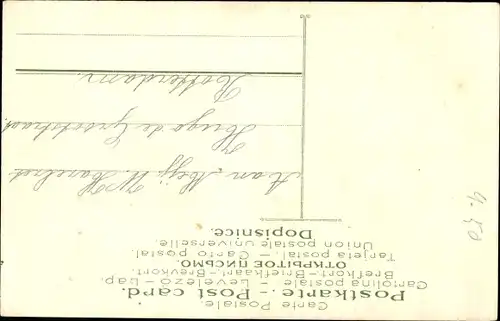 Carte Postale.
Postkarte. - Post card.
Cartolina postale - Levelező-Lap.
Brefkort-Briefkaart-Brevkort.
ОТКРЫТОЕ ПИСЬМО.
Tarjeta postal. - Canto postal.
Union postale universelle.
Dopisnice.
Aan Mejj. W.
Hugo de Grootstraat
Rotterdam.